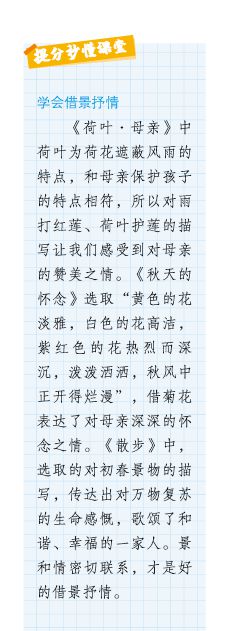 提分秒懂课堂
学会借景抒情
《荷叶·母亲》中
荷叶为荷花遮蔽风雨的
特点，和母亲保护孩子
的特点相符，所以对雨
打红莲、荷叶护莲的描
写让我们感受到对母亲
的赞美之情。《秋天的
怀念》选取“黄色的花
淡雅，白色的花高洁，
紫红色的花热烈而深
沉，泼泼洒洒，秋风中
正开得烂漫”，借菊花
表达了对母亲深深的怀
念之情。《散步》中，
选取的对初春景物的描
写，传达出对万物复苏
的生命感慨，歌颂了和
谐、幸福的一家人。景
和情密切联系，才是好
的借景抒情。